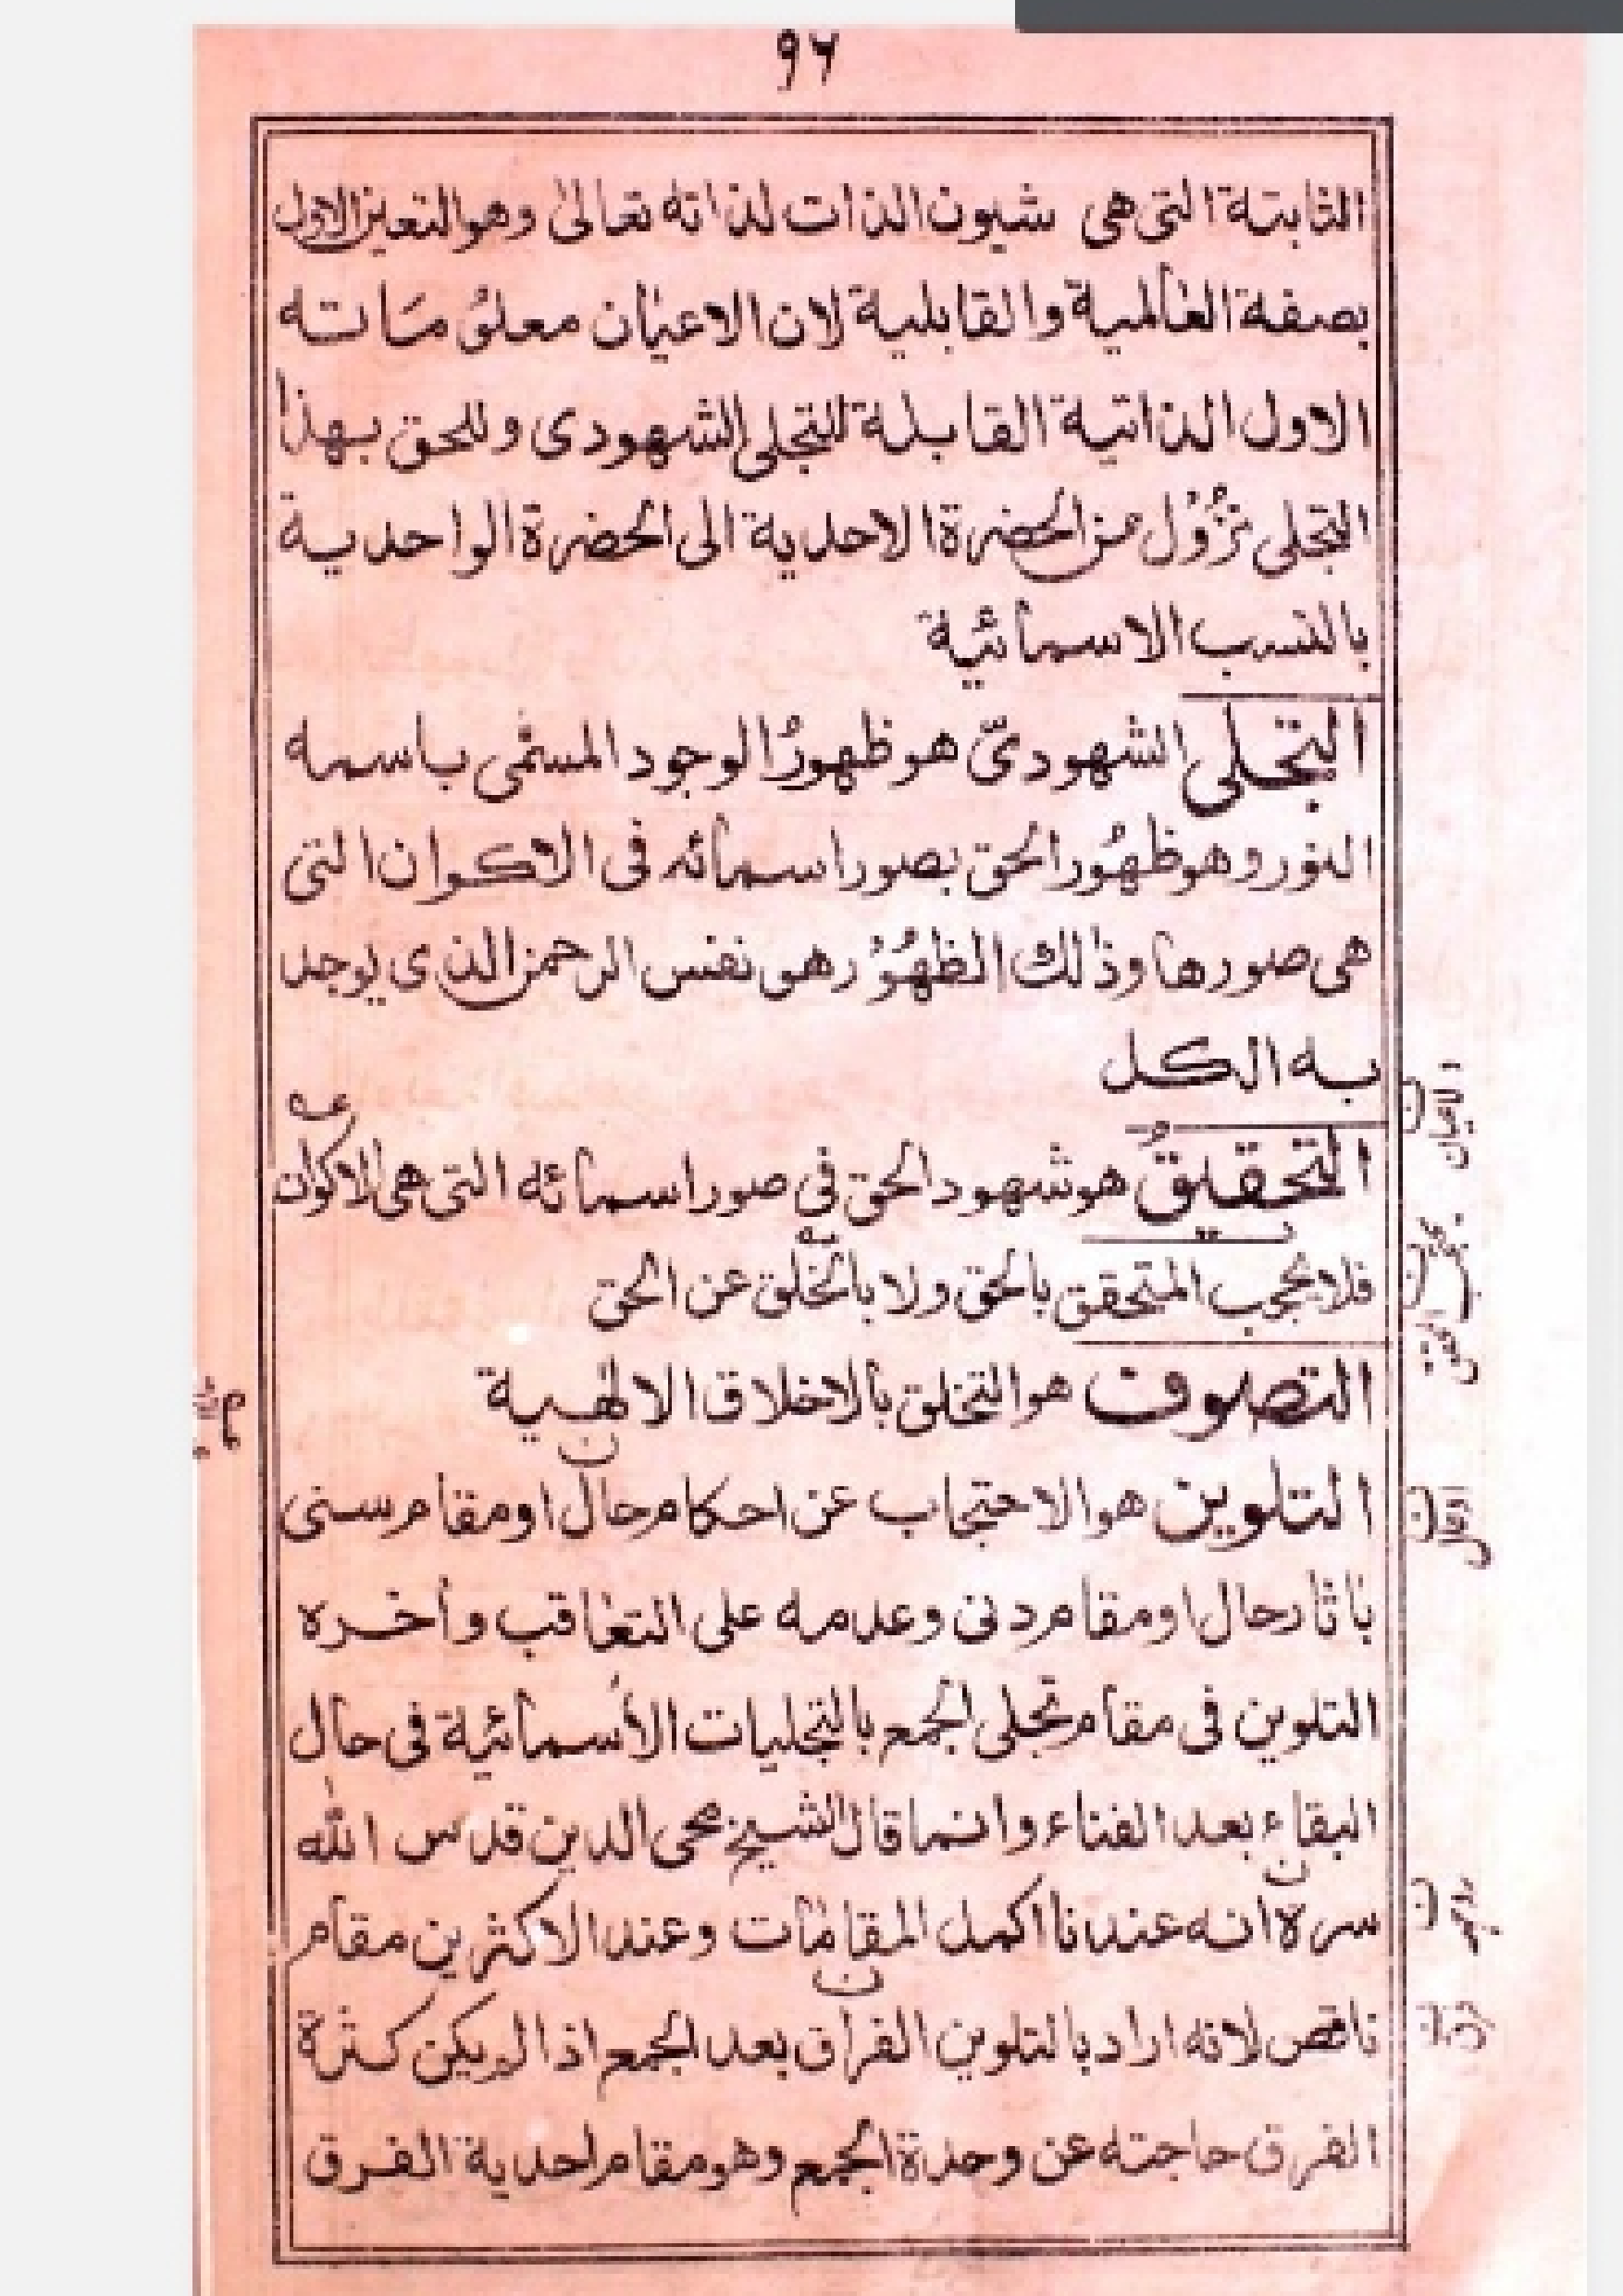 ٩٦
الثابتة التى هى شيون الذات لذاته تعالىٰ وهو التعين الاول
بصفة العالمية والقابلية لان الاعيان معلوُ مَاته
الاول الذاتية القابلة للتجلى الشهودى وللحق بهذا
التجلى نزُوُل من الحضرة الاحدية الى الحضرة الواحدية
بالنسب الاسمائية
التجلى الشهودىّ هو ظهورُ الوجود المسمّى باسمه
النور وهو ظهُور الحق بصور اسمائه فى الاكوان التى
هى صورها وذالك الظهُوُر هو نفس الرحمن الذى يوجد
به الكل
التحقيقُ هو شهود الحق فى صور اسمائه التى هى الاكوان
فلا يحجب المتحقق بالحق ولا بالخلق عن الحق
التصوف هو التخلق بالاخلاق الالٰهية
التلوين هو الاحتجاب عن احكام حال او مقام سنى
باثار حال او مقام دنى وعدمه على التعاقب وأخره
التلوين فى مقام تجلى الجمع بالتجليات الأسمائية فى حال
البقاء بعد الفناء وانما قال الشيخ محى الدين قدس الله
سره انه عندنا اكمل المقامات وعند الاكثرين مقام
ناقص لانه اراد بالتلوين الفراق بعد الجمع اذا لم يكن كثرة
الفرق حاجته عن وحدة الجمع وهو مقام احدية الفرق
الاعيان